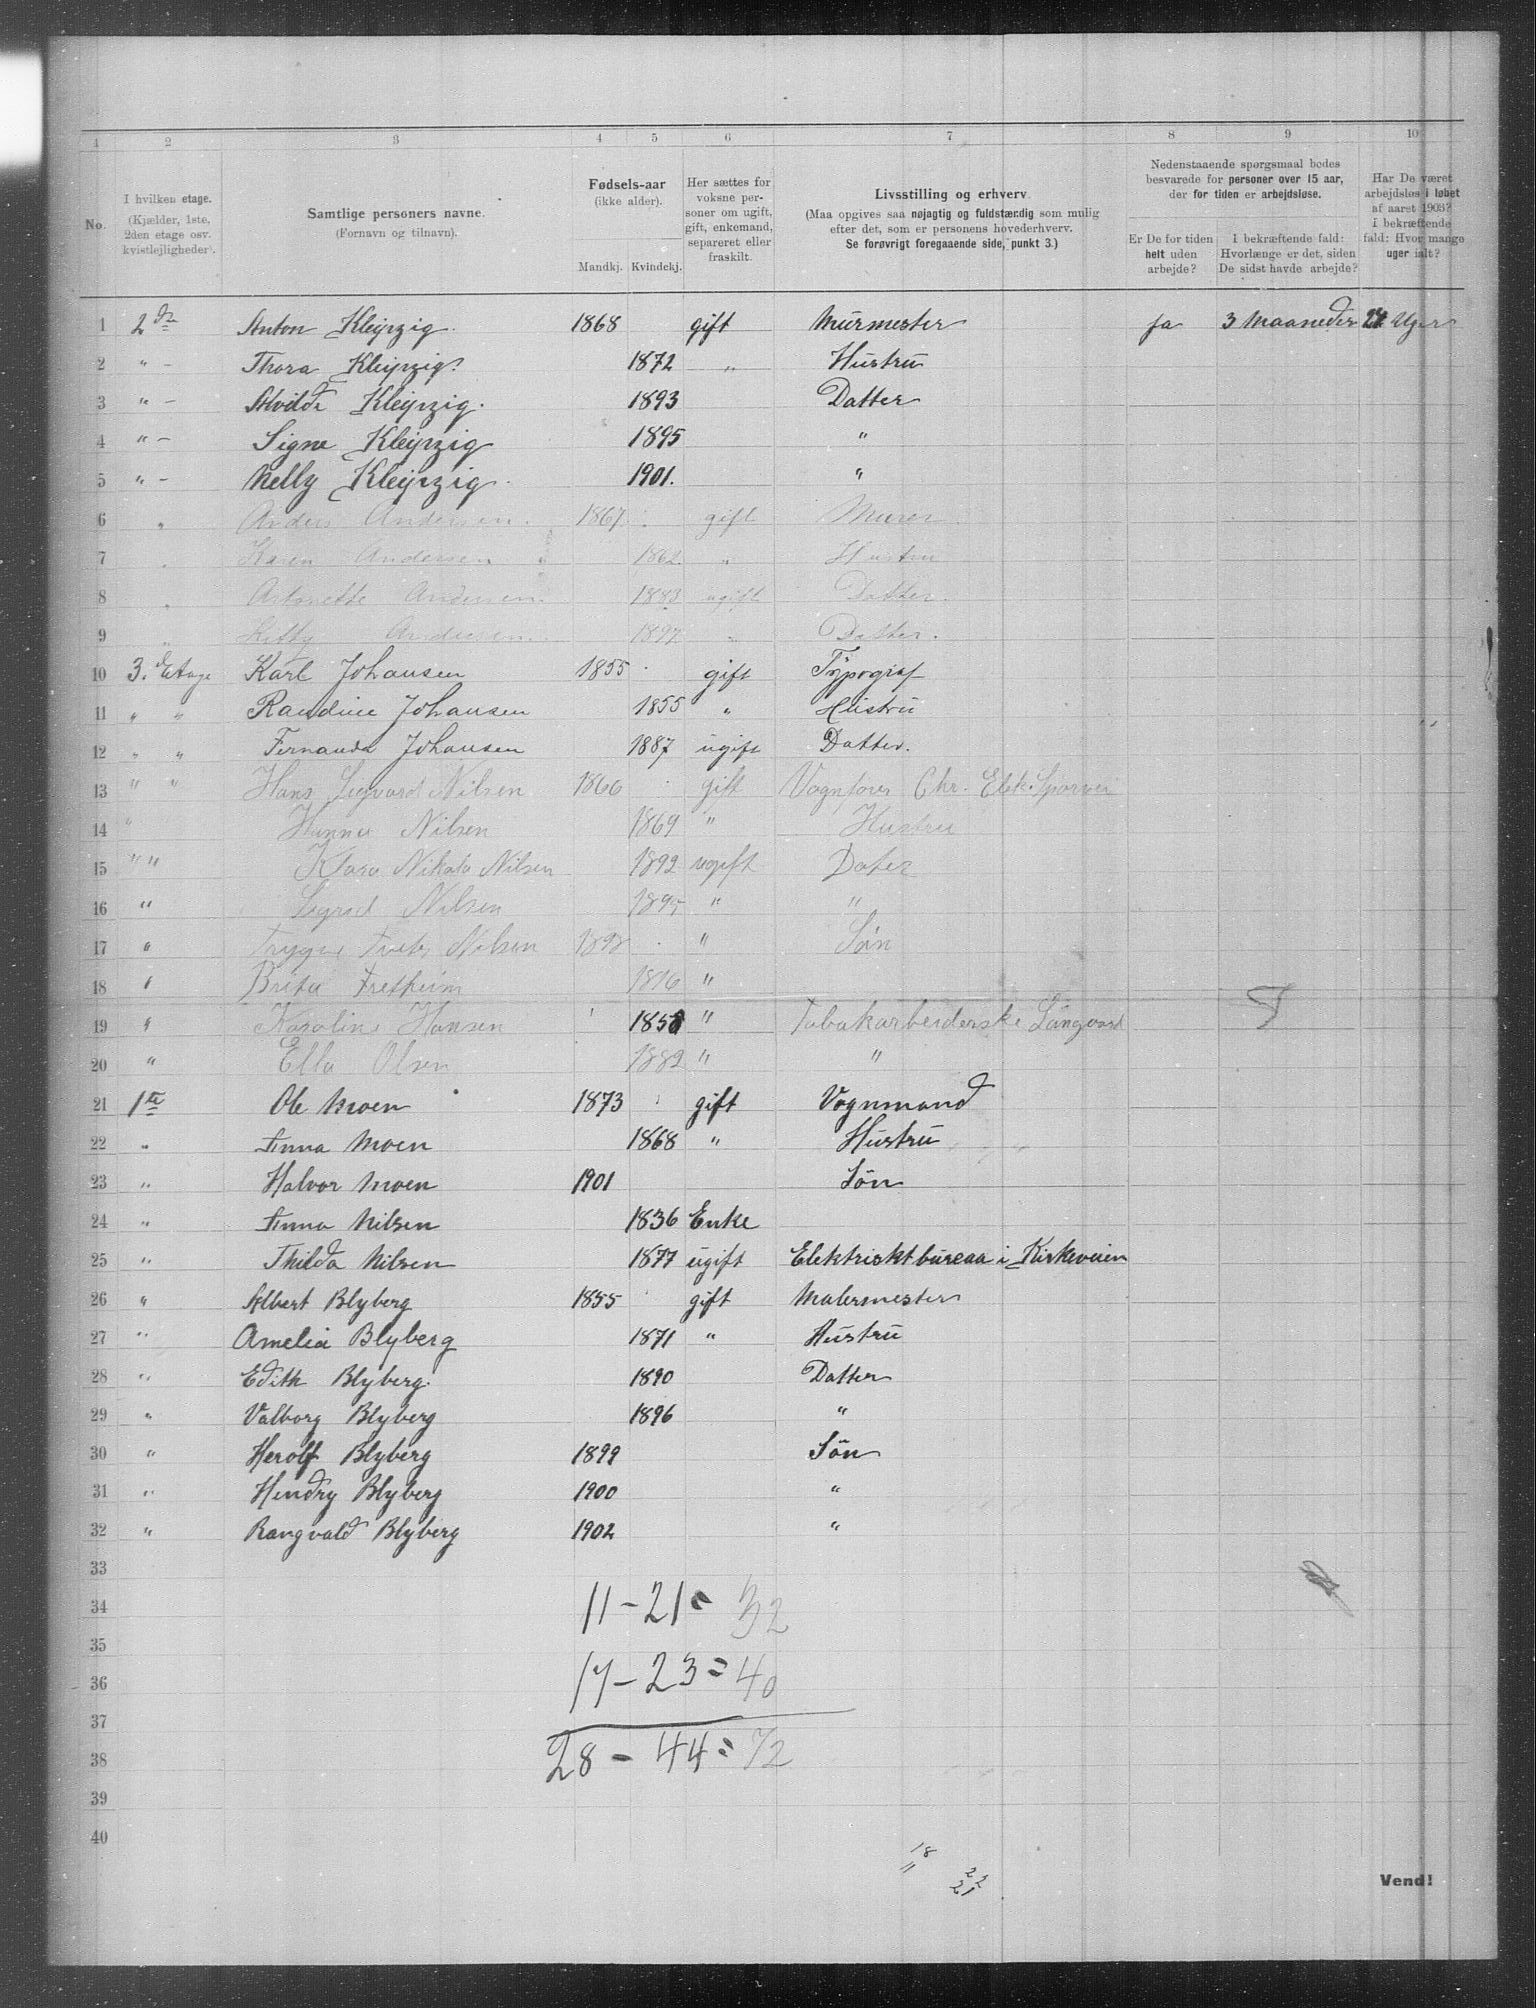 1 2 3 4 5 6 7 8 9 10
No. I hvilken etage. (Kjælder, 1ste, 2den etage osv. kvistlejligheder).
Samtlige personers navne. (Fornavn og tilnavn).
Fødsels-aar (ikke alder). Mandkj. Kvindekj.
Her sættes for voksne personer om ugift, gift, enkemand, separeret eller fraskilt.
Livsstilling og erhverv. (Maa opgives saa nøjagtig og fuldstændig som mulig efter det, som er personens hovederhverv. Se forøvrigt foregaaende side, punkt 3.)
Nedenstaaende spørgsmaal bedes besvarede for personer over 15 aar, der for tiden er arbejdsløse.
Er De for tiden helt uden arbejde?
I bekræftende fald: Hvorlænge er det, siden De sidst havde arbejde?
Har De været arbejdsløs i løbet af aaret 1903? I bekræftende fald: Hvor mange uger ialt?
1 2den Anton Kleyzig. 1868 gift Murmester ja 3 Maaneder 24 Uger
2 " - Thora Kleyzig. 1872 " Hustru
3 " - Alvilde Kleyzig. 1893 Datter
4 " - Signe Kleyzig 1895 "
5 " - Nelly Kleyzig. 1901. "
6 " Anders Andersen. 1867 gift Murer
7 " Karen Andersen 1862 " Hustru
8 " Antonette Andersen. 1883 ugift Datter.
9 " Andersen. 1897 " Datter.
10 3. d Etage Karl Johansen 1855 gift Typograf
11 " " Randine Johansen 1855 " Hustru
12 " " Fernanda Johansen 1887 ugift Datter.
13 " " Hans Sigvard Nilsen 1866 gift Vognfører Chr. Elek. Sporvei
14 " Hanna Nilsen 1869 " Hustru
15 " " Klara Nikola Nilsen 1892 ugift Dater
16 " Sigrid Nilsen 1895 " "
17 " Nilsen 1898 " Søn
18 " Brita Fretheim 1876 "
19 " Karoline Hansen 1858 " Tabakarbeiderske Langaard
20 " Ella Olsen 1882 " "
21 1te Ole Moen 1873 gift Vognmand
22 " Anna Moen 1868 " Hustru
23 " Halvor Moen 1901 Søn
24 " Anna Nilsen 1836 Enke
25 " Thilda Nilsen 1877 ugift Elektrisktbureaa i Kirkeveien
26 " Albert Blyberg 1855 gift Malermester
27 " Amelia Blyberg 1871 " Hustru
28 " Edith Blyberg. 1890 Datter
29 " Valborg Blyberg 1896 "
30 " Herolf Blyberg 1899 Søn
31 " Hendry Blyberg 1900 "
32 " Rangvald Blyberg 1902 "
33
34 11 - 21 = 32
35
36 17 - 23 = 40
37
38 28 - 44 = 72
39
40
18 22
11 21
Vend!